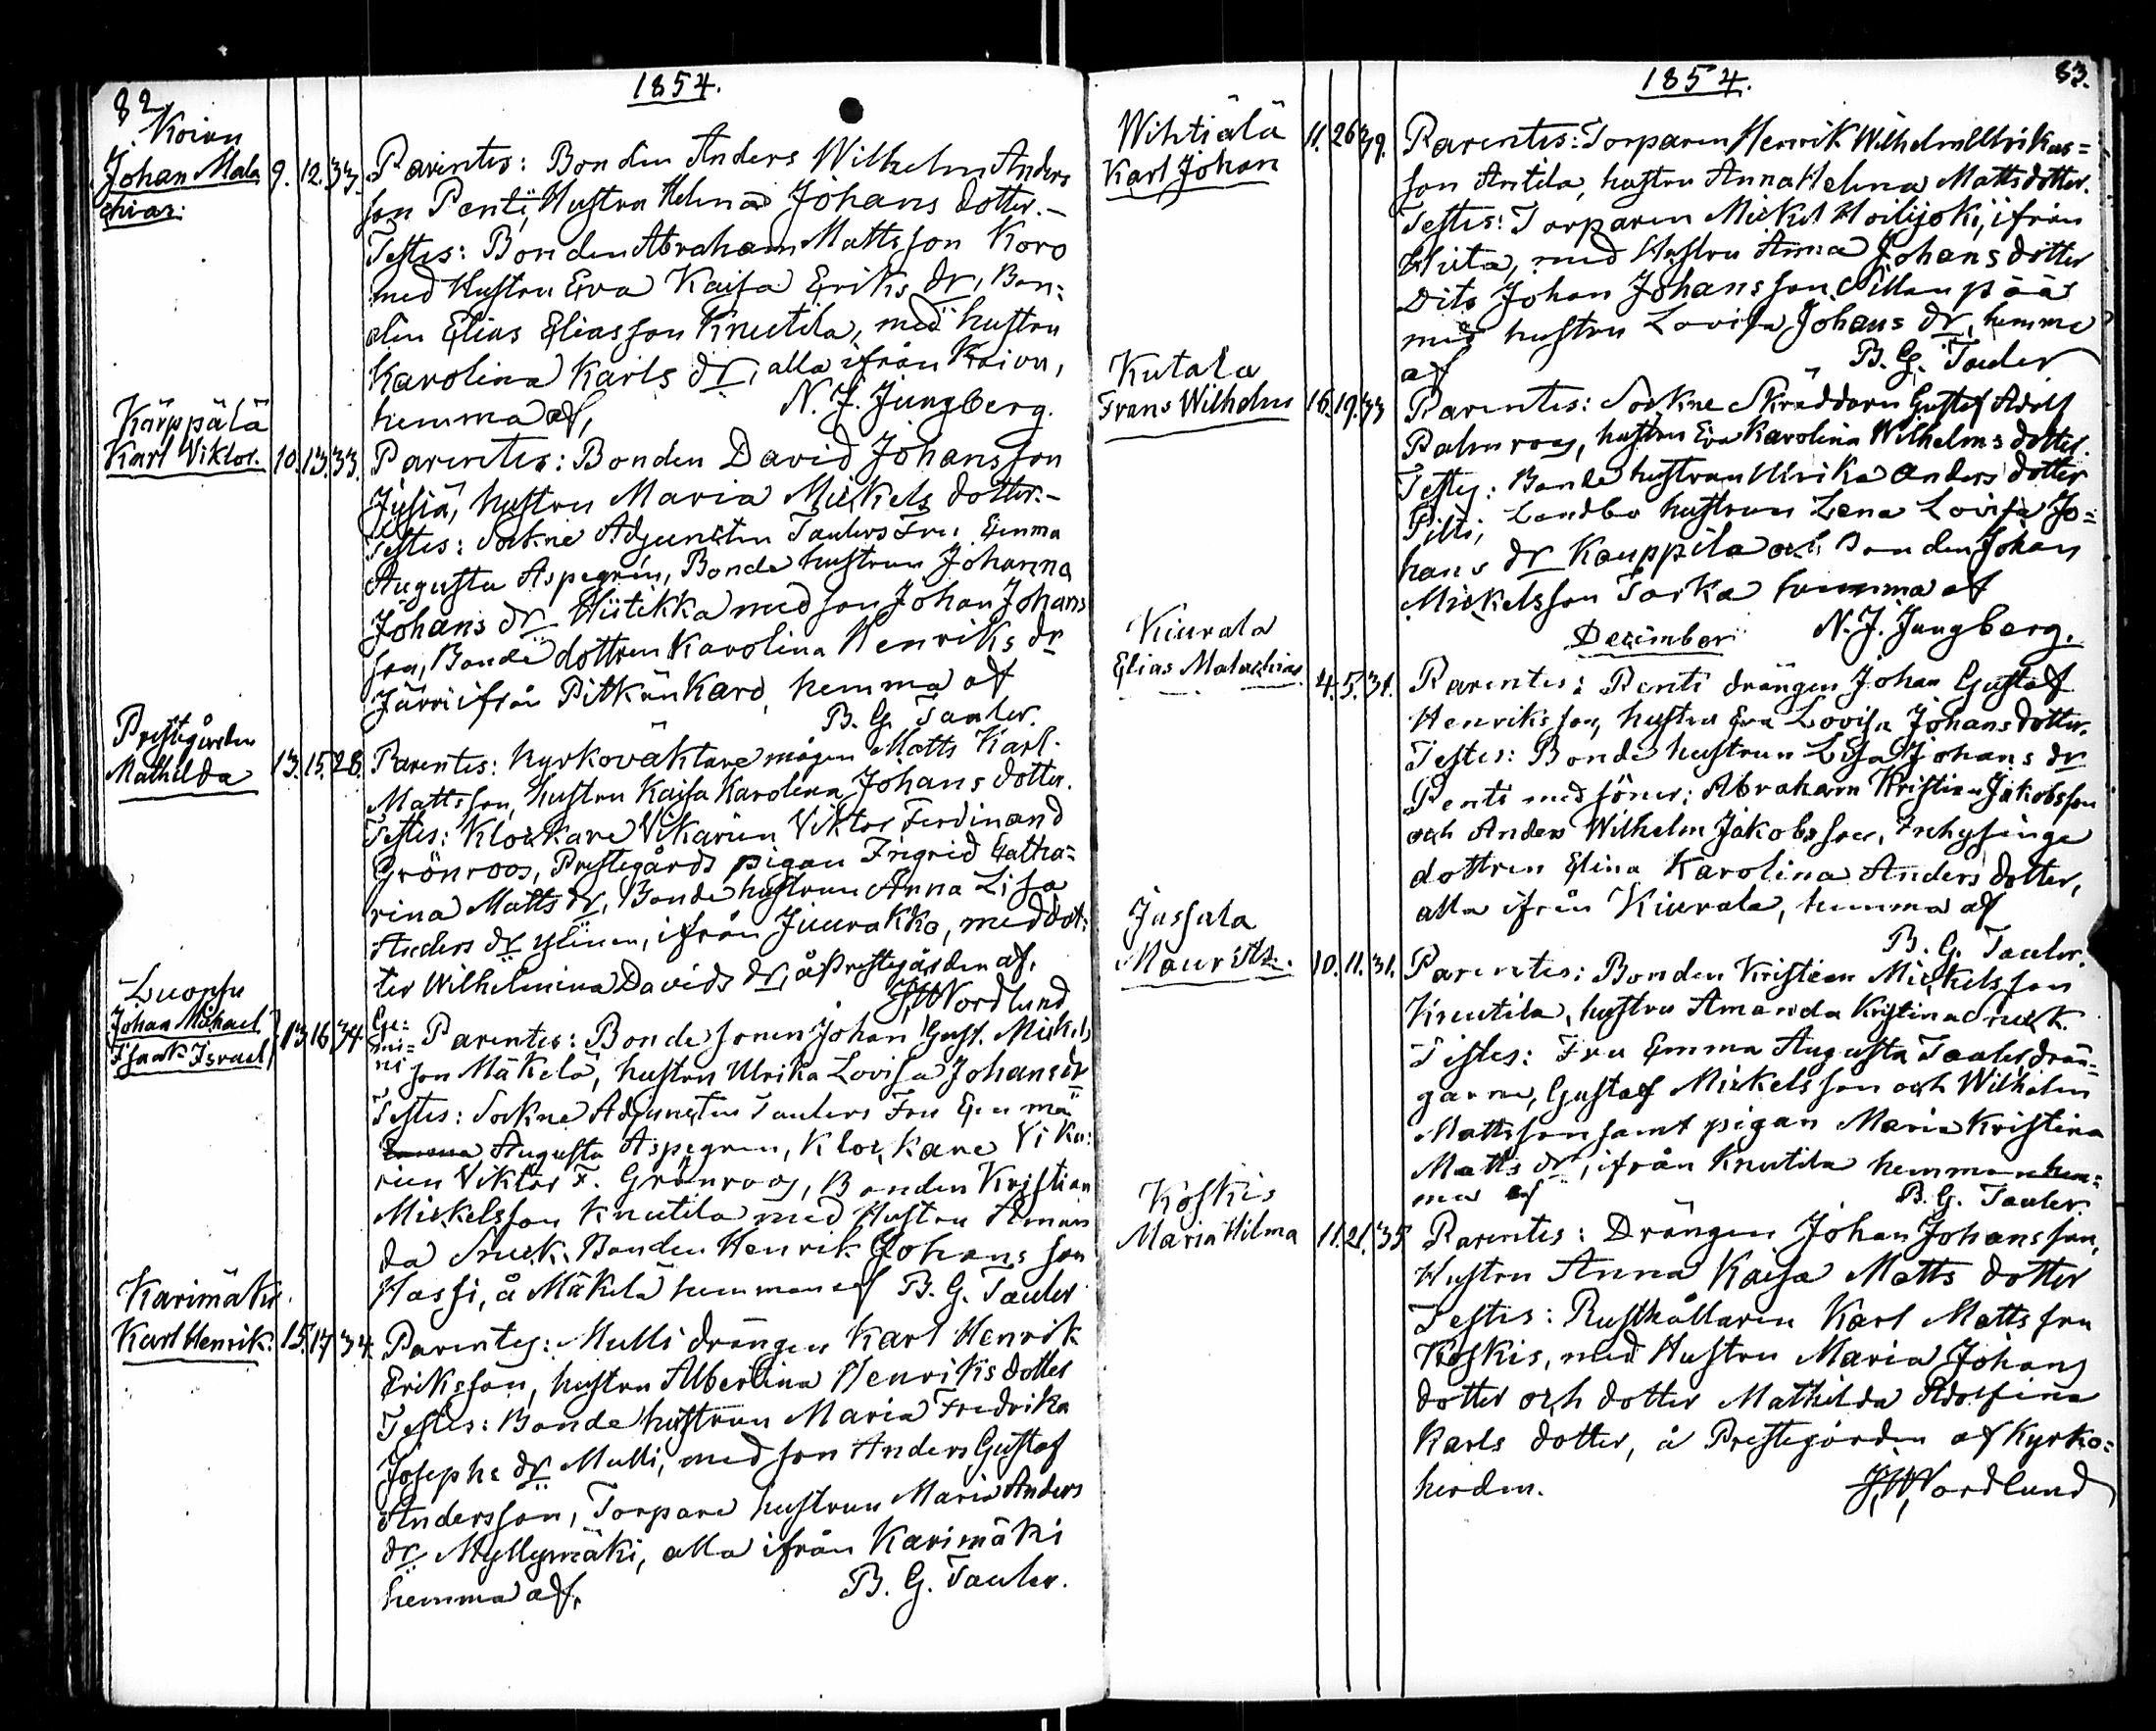 82
1854.
Koivu
Johan Mala
chias:
9. 12. 33.
Parentes: Bonden Anders Wilhelm Anders
son Penti, Hustru Helena Johans dotter.-
Testes: Bonden Abraham Mattsson Koro
med Hustru Eva Kaisa Eriks dr, Bon-
den Elias Eliasson Knutila, med hustru
Karolina Karls dr, alla ifrån Koivu,
hemma af, N. J. Jungberg.
Kärppälä
Karl Viktor.
10. 13. 33.
Parentes: Bonden David Johansson
Jusiä, hustru Maria Mickels dotter.-
Testes: Sockne Adjuncten Taulers Fru Emma
Augusta Aspegrén, Bonde hustrun Johanna
Johans dr Hiitikka med son Johan Johans
son, Bonde dottren Karolina Henriks dr
Järvi ifrån Pitkänkaro, hemma af
B. G. Tauler.
Prestgården
Mathilda
13. 15. 28.
Parentes: Kyrkoväktare mågen Matts Karl
Mattsson, hustru Kaisa Karolina Johans dotter.
Testes: Klockare Vikarien Viktor Ferdinand
Grönroos, Prestegårds pigan Ingrid Catha-
rina Matts dr, Bonde hustrun Anna Lisa
Anders dr Ylinen, ifrån Juurakko, med dot-
ter Wilhelmina Davids dr, å Prestegården af,
JWNordlund
Luonsu
Johan Michael,
Isaak Israel,
13 16 34
Ge-
mi-
ni
Parentes: Bonde sonen Johan Gust. Mickels
son Mäkelä, hustru Ulrika Lovisa Johans dr
Testes: Sockne Adjuncten Taulers Fru Emma
Augusta Aspegren, Klockare Vika-
rien Viktor F. Grönroos, Bonden Kristian
Mickelsson Knutila med Hustru Aman
da Snuck, Bonden Henrik Johans son
Hassi, å Mäkelä hemman af B. G. Tauler
Karimäki
Karl Henrik.
15. 17. 34.
Parentes: Mulli drängen Karl Henrik
Eriksson, hustru Albertina Henriks dotter
Testes: Bonde hustrun Maria Fredrika
Josephs dr Mulli, med son Anders Gustaf
Andersson, Torpare hustrun Maria Anders
dr Myllymäki, alla ifrån Karimäki
hemma af, B. G. Tauler.
1854.
83.
Wihtiälä
Karl Johan
11. 26 39.
Parentes: Torparen Henrik Wilhelm Ulrikas-
son Antila, hustru Anna Helena Matts dotter.
Testes: Torparen Mickel Hoilijoki, ifrån
med Hustru Anna Johans dotter
Dito Johan Johansson Sillanpää
med hustru Lovisa Johans dr, hemma
af B. G. Tauler
Kutala
Frans Wilhelm
16. 19. 33
Parentes: Sockne Skräddaren Gustaf Adolf
Palmroos, hustru Eva Karolina Wilhelms dotter.
Testes: Bonde hustrun Ulrika Anders dotter
Pilti, Landbo hustrun Lena Lovisa Jo-
hans dr Kauppila och Bonden Johan
Mickelsson Torka hemma af
December N. J. Jungberg.
Kiurala
Elias Malachias
4. 5. 31.
Parentes: Penti drängen Johan Gustaf
Henriksson, hustru Eva Lovisa Johans dotter.
Testes: Bonde hustrun Lisa Johans dr
Penti med söner: Abraham Kristian Jakobsson
och Anders Wilhelm Jakobsson, Inhysinge
dottren Elina Karolina Anders dotter,
alla ifrån Kiurala, hemma af
B. G. Tauler.
Jussula
Mauritz.
10. 11. 31.
Parentes: Bonden Kristian Mickelsson
Knutila, hustru Amanda Kristina Snuck.
Testes: Fru Emma Augusta Tauler, drän-
garne, Gustaf Mickelsson och Wilhelm
Mattsson samt pigan Maria Kristina
Matts dr, ifrån Knutila hemman hem-
ma af B. G. Tauler.
Koskis
Maria Hilma
11. 21. 35
Parentes: Drängen Johan Johansson,
Hustru Anna Kaisa Matts dotter
Testes: Rusthållaren Karl Mattsson
Koskis, med Hustru Maria Johans
dotter och dotter Mathilda Adolfina
Karls dotter, å Prestegården af Kyrko-
herden. JWNordlund